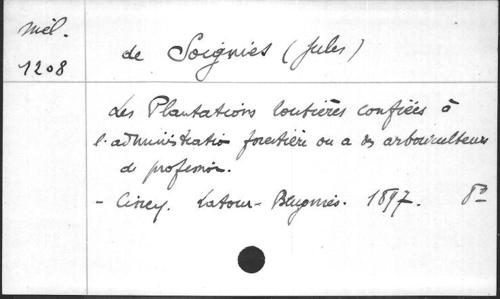 mél.
1208
de Soignies (Jules)
Les Plantations routières confiées à
l'administration forestière ou a des arboriculteurs
de profession.
- Ciney. Latour-Beugnies. 1897. 8°